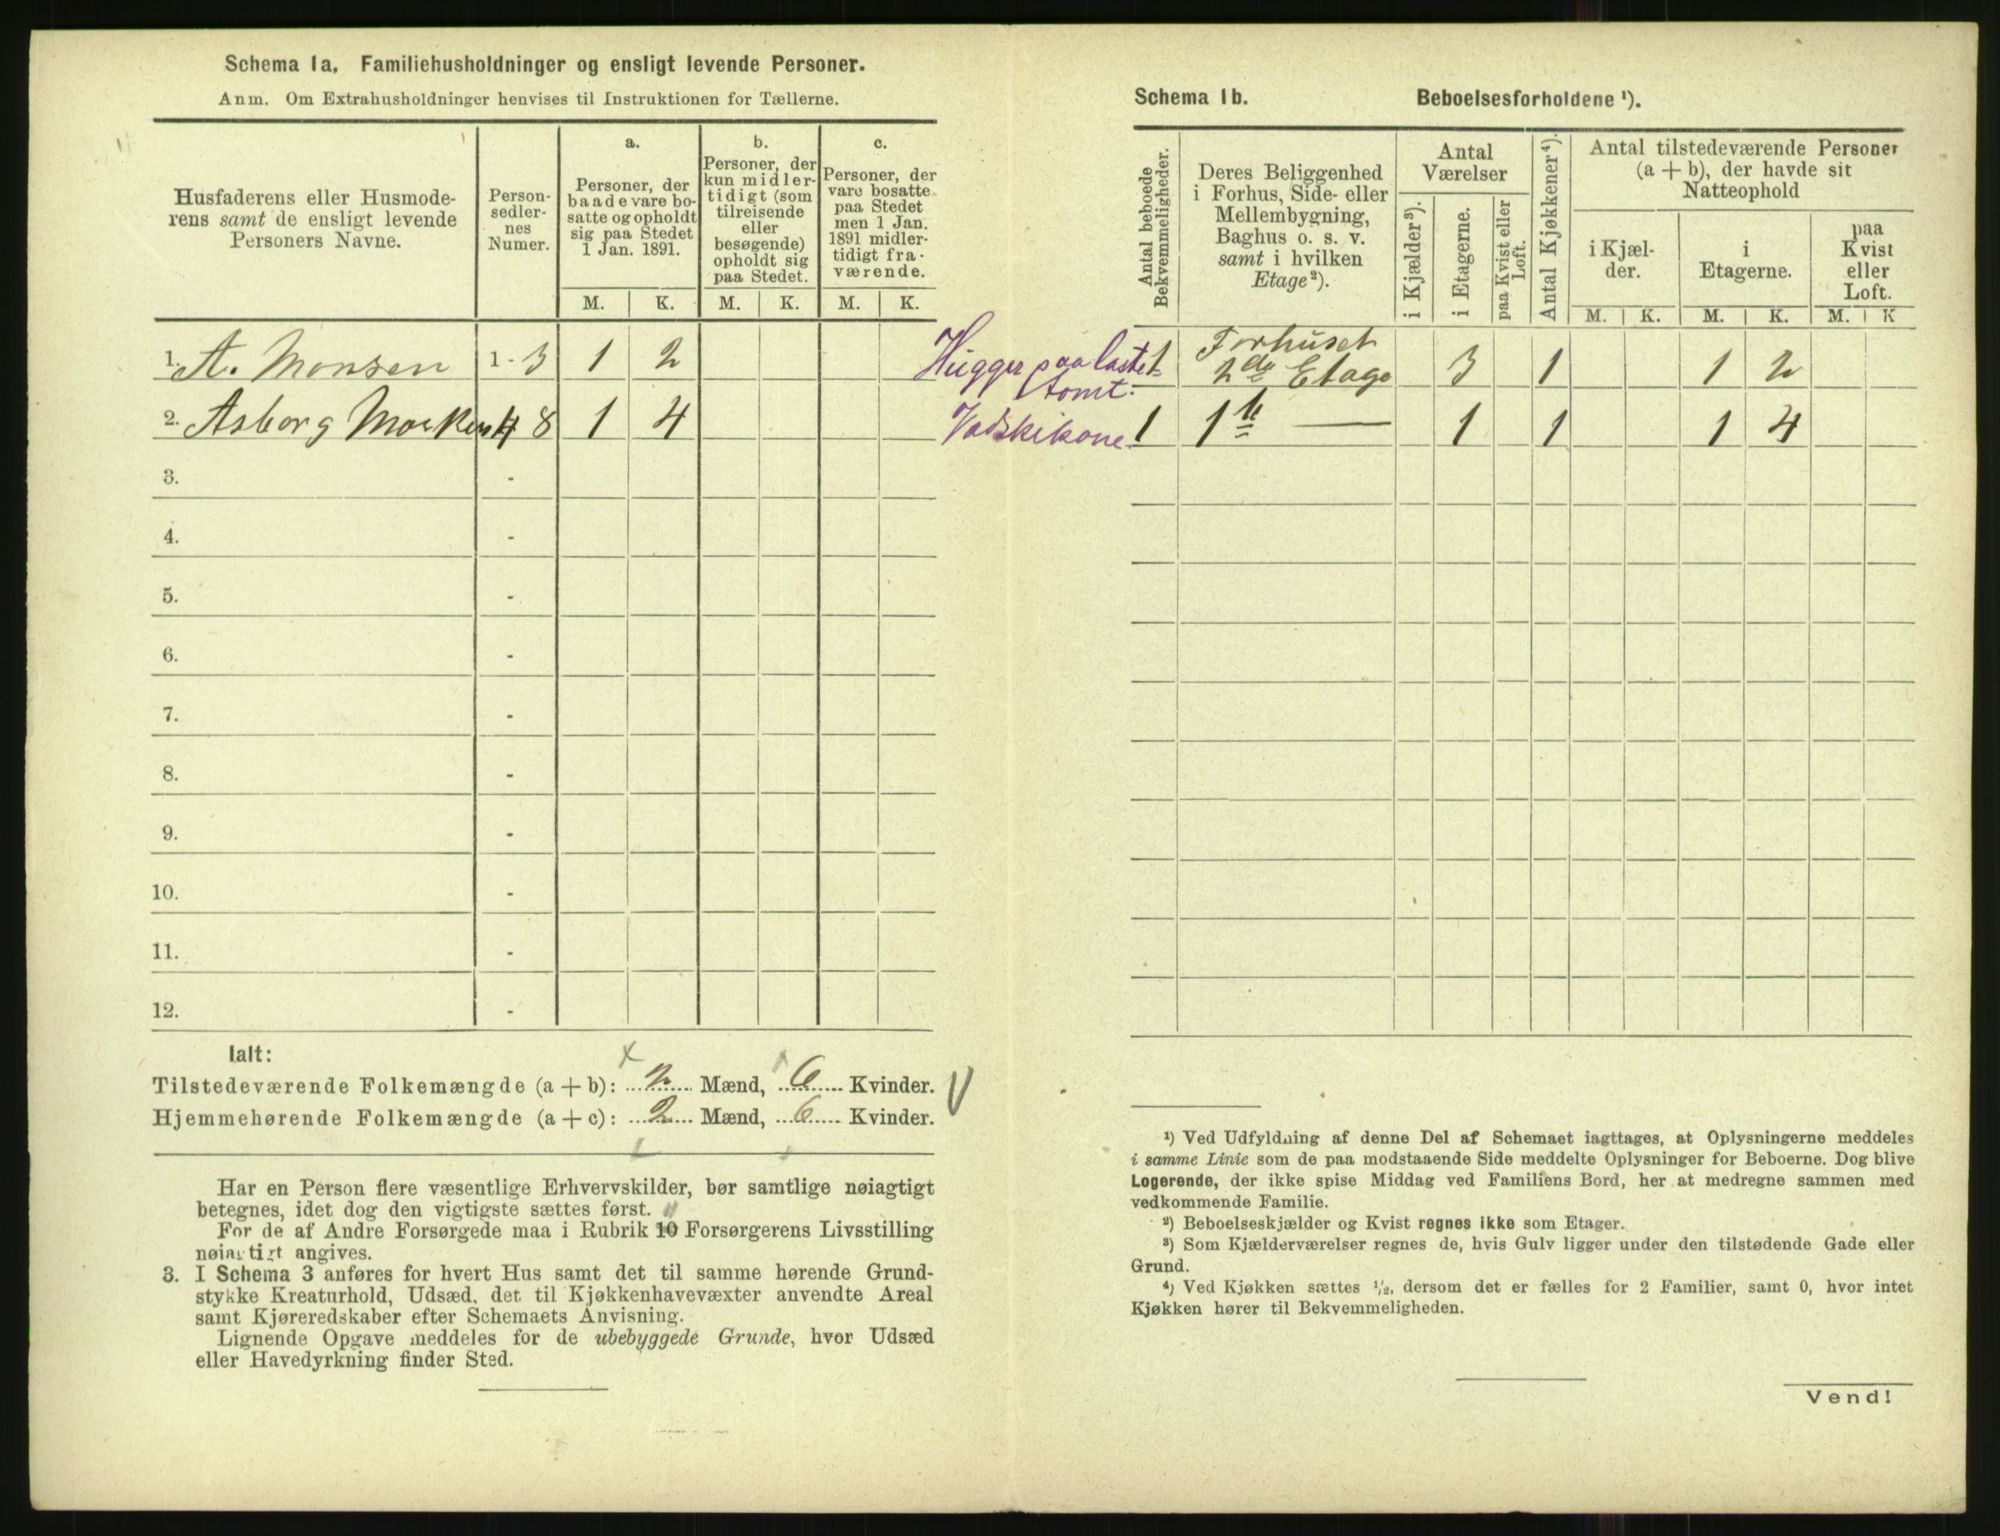 Schema 1a. Familiehusholdninger og ensligt levende Personer.
Anm. Om Extrahusholdninger henvises til Instruktionen for Tællerne.
Husfaderens eller Husmode-
rens samt de ensligt levende
Personers Navne.
Person-
sedler-
nes
Numer.
a.
Personer, der
baade vare bo-
satte og opholdt
sig paa Stedet
1 Jan. 1891.
b.
Personer, der
kun midler-
tidigt (som
tilreisende
eller
besøgende)
opholdt sig
paa Stedet.
c.
Personer, der
vare bosatte
paa Stedet
men 1 Jan.
1891 midler-
tidigt fra-
værende.
M. K. M. K. M. K.
1. A. Monsen 1 - 3 1 2
2. Asborg 4 8 1 4
3. -
4. -
5. -
6. -
7. -
8. -
9. -
10. -
11. -
12. -
Ialt:
Tilstedeværende Folkemængde (a + b): 2 Mænd, 6 Kvinder.
Hjemmehørende Folkemængde (a + c): 2 Mænd, 6 Kvinder.
Har en Person flere væsentlige Erhvervskilder, bør samtlige nøiagtigt
betegnes, idet dog den vigtigste sættes først.
For de af Andre Forsørgede maa i Rubrik 10 Forsørgerens Livsstilling
nøiagtigt angives.
3. I Schema 3 anføres for hvert Hus samt det til samme hørende Grund-
stykke Kreaturhold, Udsæd, det til Kjøkkenhavevæxter anvendte Areal
samt Kjøreredskaber efter Schemaets Anvisning.
Lignende Opgave meddeles for de ubebyggede Grunde, hvor Udsæd
eller Havedyrkning finder Sted.
Schema 1b. Beboelsesforholdene ¹).
Antal beboede
Bekvemmeligheder.
Deres Beliggenhed
i Forhus, Side- eller
Mellembygning,
Baghus o. s. v.
samt i hvilken
Etage²).
Antal
Værelser
i Kjælder³).
i Etagerne.
paa Kvist eller
Loft.
Antal Kjøkkener⁴).
Antal tilstedeværende Personer
(a + b), der havde sit
Natteophold
i Kjæl-
der.
i
Etagerne.
paa
Kvist
eller
Loft.
M. K. M. K. M. K
Hugger paa laste
tomt.
1 Forhuset
2de Etage 3 1 1 2
Vadskikone 1 1te — 1 1 1 4
¹) Ved Udfyldning af denne Del af Schemaet iagttages, at Oplysningerne meddeles
i samme Linie som de paa modstaaende Side meddelte Oplysninger for Beboerne. Dog blive
Logerende, der ikke spise Middag ved Familiens Bord, her at medregne sammen med
vedkommende Familie.
²) Beboelseskjælder og Kvist regnes ikke som Etager.
³) Som Kjælderværelser regnes de, hvis Gulv ligger under den tilstødende Gade eller
Grund.
⁴) Ved Kjøkken sættes ¹/₂, dersom det er fælles for 2 Familier, samt 0, hvor intet
Kjøkken hører til Bekvemmeligheden.
Vend!